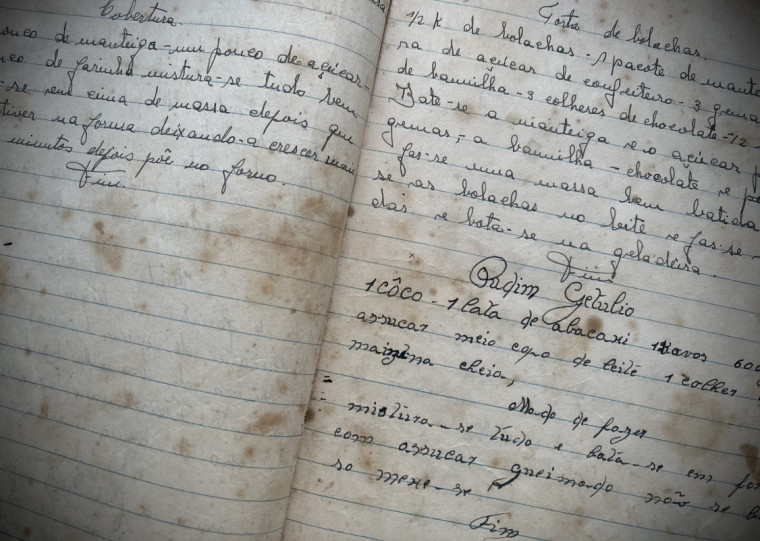 Cobertura.
pouco de manteiga - um pouco de açúcar -
de farinha mistura-se tudo bem
-se em cima de massa depois que
tiver na forma deixando-a crescer mais
minutos depois põe no forno.
Fim.
Torta de bolachas.
1/2 K de bolachas - 1 pacote de mante
ra de açúcar de confeiteiro - 3 gema
de baunilha - 3 colheres de chocolate - 1/2
Bate-se a manteiga e o açúcar
gemas, - a baunilha - chocolate e
fas-se uma massa bem batida
se as bolachas no leite e fas-se
das e bota-se na geladeira.
Fim
Pudim Getulio
1 côco - 1 lata de abacaxi 12 ovos 600
assucar meio copo de leite 1 colher
maizena cheia,
Modo de fazer
mistura-se tudo e bata-se em
com assucar queimado não se
so mexe-se
Fim